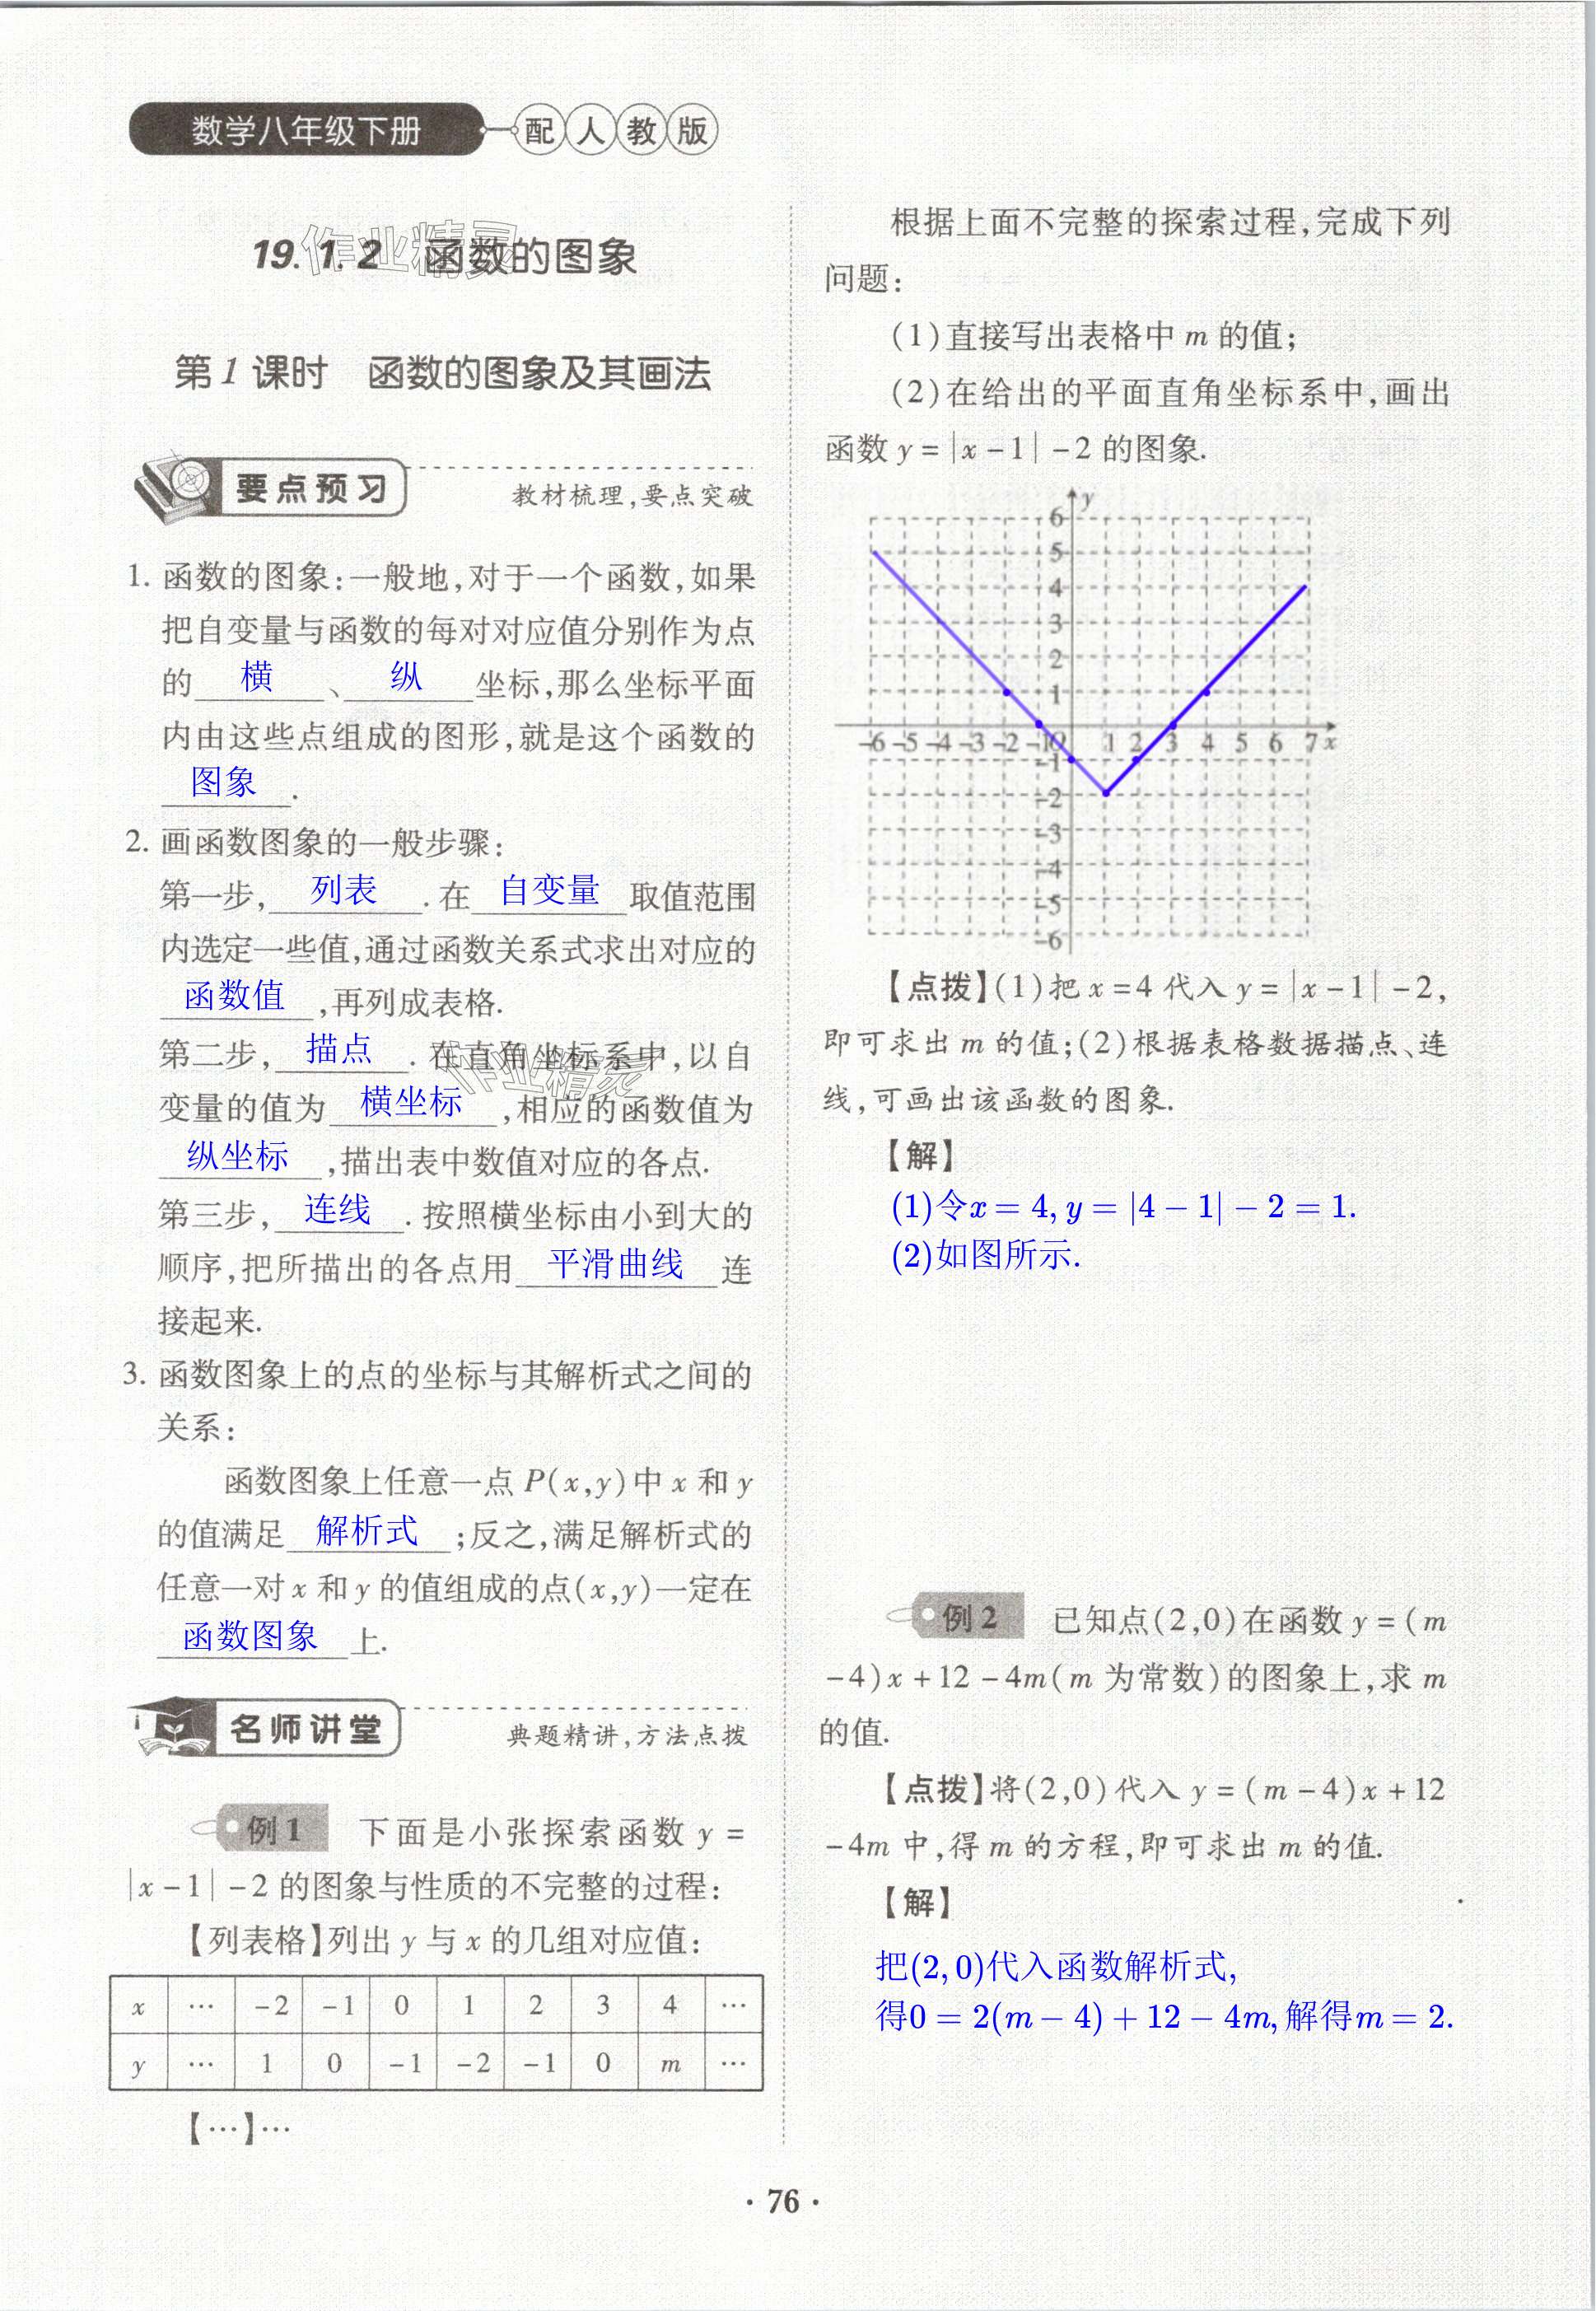 数学八年级下册 配人教版
19.1.2 函数的图象
第1课时 函数的图象及其画法
要点预习 教材梳理,要点突破
1. 函数的图象:一般地,对于一个函数,如果
把自变量与函数的每对对应值分别作为点
的 横 、 纵 坐标,那么坐标平面
内由这些点组成的图形,就是这个函数的
图象 .
2. 画函数图象的一般步骤:
第一步, 列表 . 在 自变量 取值范围
内选定一些值,通过函数关系式求出对应的
函数值 ,再列成表格.
第二步, 描点 . 在直角坐标系中,以自
变量的值为 横坐标 ,相应的函数值为
纵坐标 ,描出表中数值对应的各点.
第三步, 连线 . 按照横坐标由小到大的
顺序,把所描出的各点用 平滑曲线 连
接起来.
3. 函数图象上的点的坐标与其解析式之间的
关系:
函数图象上任意一点 P(x,y)中 x 和 y
的值满足 解析式 ;反之,满足解析式的
任意一对 x 和 y 的值组成的点(x,y)一定在
函数图象 上.
名师讲堂 典题精讲,方法点拨
例1 下面是小张探索函数 y =
|x-1|-2 的图象与性质的不完整的过程:
【列表格】列出 y 与 x 的几组对应值:
x … -2 -1 0 1 2 3 4 …
y … 1 0 -1 -2 -1 0 m …
【…】…
根据上面不完整的探索过程,完成下列
问题:
(1)直接写出表格中 m 的值;
(2)在给出的平面直角坐标系中,画出
函数 y = |x-1| -2 的图象.
y
6
5
4
3
2
1
-6 -5 -4 -3 -2 -1 0 1 2 3 4 5 6 7 x
-1
-2
-3
-4
-5
-6
【点拨】(1)把 x = 4 代入 y = |x-1| -2,
即可求出 m 的值;(2)根据表格数据描点、连
线,可画出该函数的图象.
【解】
(1)令x = 4, y = |4 − 1| − 2 = 1.
(2)如图所示.
例2 已知点(2,0)在函数 y = (m
-4)x+12-4m(m 为常数)的图象上,求 m
的值.
【点拨】将(2,0)代入 y = (m-4)x+12
-4m 中,得 m 的方程,即可求出 m 的值.
【解】
把(2, 0)代入函数解析式,
得0 = 2(m − 4) + 12 − 4m, 解得m = 2.
· 76 ·
作业精灵
作业精灵